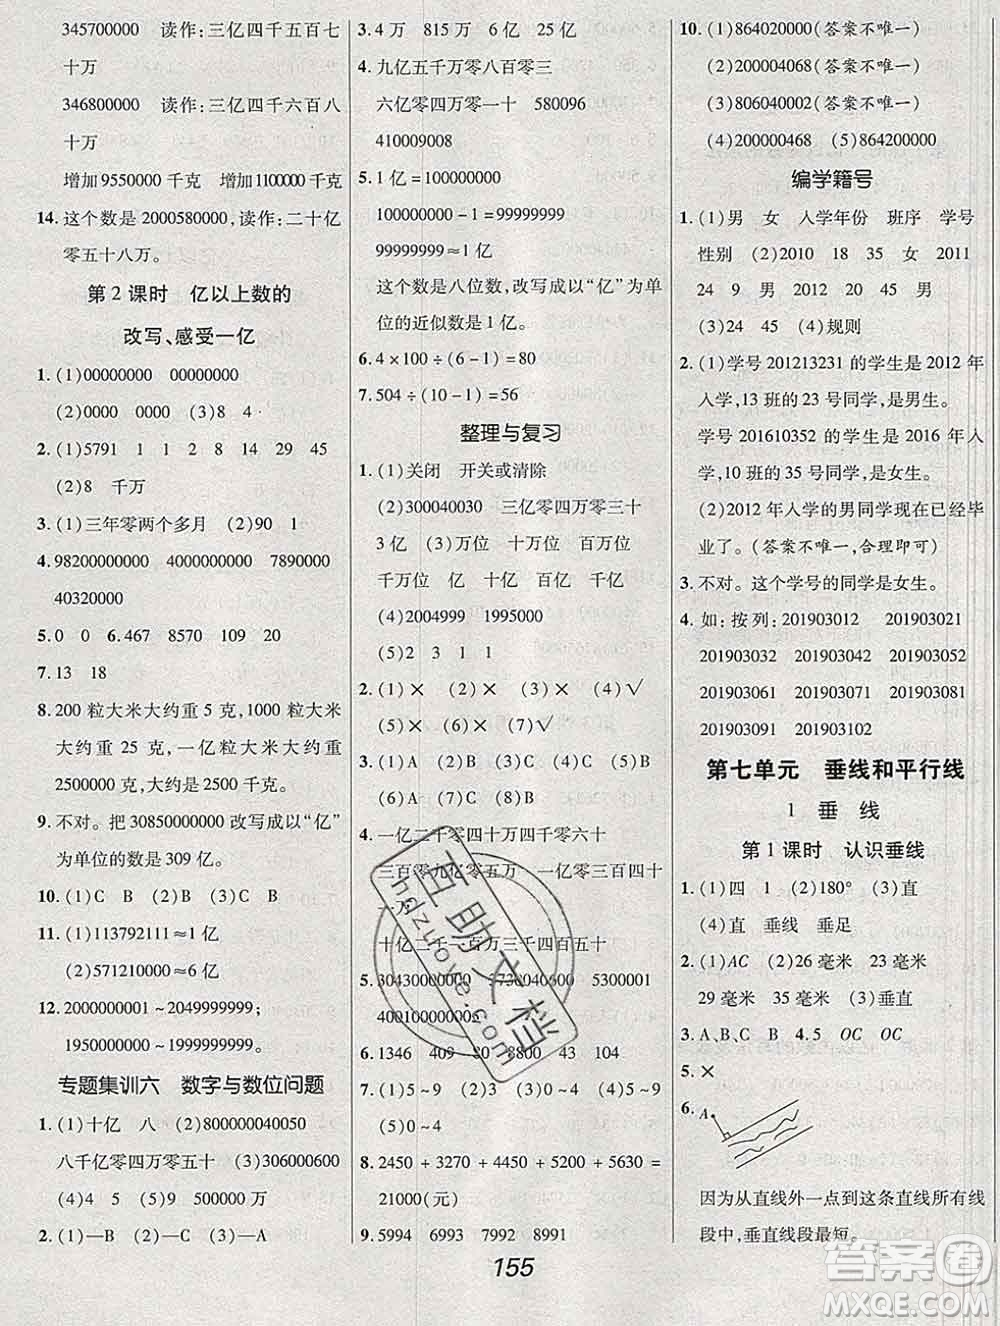 345700000 读作:三亿四千五百七
十万
346800000 读作:三亿四千六百八
十万
增加 9550000 千克 增加 1100000 千克
14. 这个数是 2000580000,读作:二十亿
零五十八万。
第 2 课时 亿以上数的
改写、感受一亿
1. (1)00000000 00000000
(2)0000 0000 (3)8 4
2. (1)5791 1 1 2 8 29 45
(2)8 千万
3. (1)三年零两个多月 (2)90 1
4. 98200000000 4000000000 7890000
40320000
5. 0 0 6. 467 8570 109 20
7. 13 18
8. 200 粒大米大约重 5 克,1000 粒大米
大约重 25 克,一亿粒大米大约重
2500000 克,大约是 2500 千克。
9. 不对。把 30850000000 改写成以“亿”
为单位的数是 309 亿。
10. (1)C B (2)B (3)C B
11. (1)113792111≈1 亿
(2)571210000≈6 亿
12. 2000000001~2049999999;
1950000000~1999999999。
专题集训六 数字与数位问题
1. (1)十亿 八 (2)800000040050
八千亿零四万零五十 (3)306000600
(4)4 5 9 500000 万
2. (1)—B (2)—C (3)—A
3. 4 万 825 亿 6 亿 25 亿
4. 九亿五千万零八百零三
六亿零四万零一十 580096
410009008
5. 1 亿=100000000
100000000-1=99999999
99999999≈1 亿
这个数是八位数,改写成以“亿”为单
位的近似数是 1 亿。
6. 4×100÷(6-1)=80
7. 504÷(10-1)=56
整理与复习
1. (1)关闭 开关或清除
(2)300040030 三亿零四万零三十
3 亿 (3)万位 十万位 百万位
千万位 亿 十亿 百亿 千亿
(4)2004999 1995000
(5)2 3 1 1
2. (1)× (2)× (3)× (4)√
(5)× (6)× (7)√
3. (1)A (2)B (3)C (4)B (5)B
(6)A (7)C (8)B (9)B
4. 一亿二千零四十万四千零六十
三百零九亿零五万 一亿零三百零四
十亿二千一百万三千四百五十
5. 30430000000 5730040600 5300001
40010000005
6. 1346 409 80 8800 43 104
7. (1)5~9 (2)5~9 (3)9 (4)4
(5)0~4
8. 2450+3270+4450+5200+5630=
21000(元)
9. 5994 6993 7992 8991
10. (1)864020000(答案不唯一)
(2)200004068(答案不唯一)
(3)806040002(答案不唯一)
(4)200000468 (5)864200000
编学籍号
1. (1)男 女 入学年份 班序 学号
性别 (2)2010 18 35 女 2011
24 9 男 2012 20 45 男
(3)24 45 (4)规则
2. (1)学号 201213231 的学生是 2012 年
入学,13 班的 23 号同学,是男生。
学号 201610352 的同学是 2016 年入
学,10 班的 35 号同学,是女生。
(2)2012 年入学的男同学现在已经毕
业了。(答案不唯一,合理即可)
3. 不对。这个学号的同学是女生。
4. 如:按列:201903012 201903021
201903032 201903042 201903052
201903061 201903071 201903082
201903091 201903102
第七单元 垂线和平行线
1 垂 线
第 1 课时 认识垂线
1. (1)四 1 (2)180° (3)直
(4)直 垂线 垂足
2. (1)AC (2)26 毫米 23 毫米
29 毫米 25 毫米 (3)垂直
3. A、B、C B 4. 5 OC OC
5. ×
6. A
因为从直线外一点到这条直线所有线
段中,垂直线段最短。
155
互助文档
hdzuoye.com
答案圈
MXQE.COM